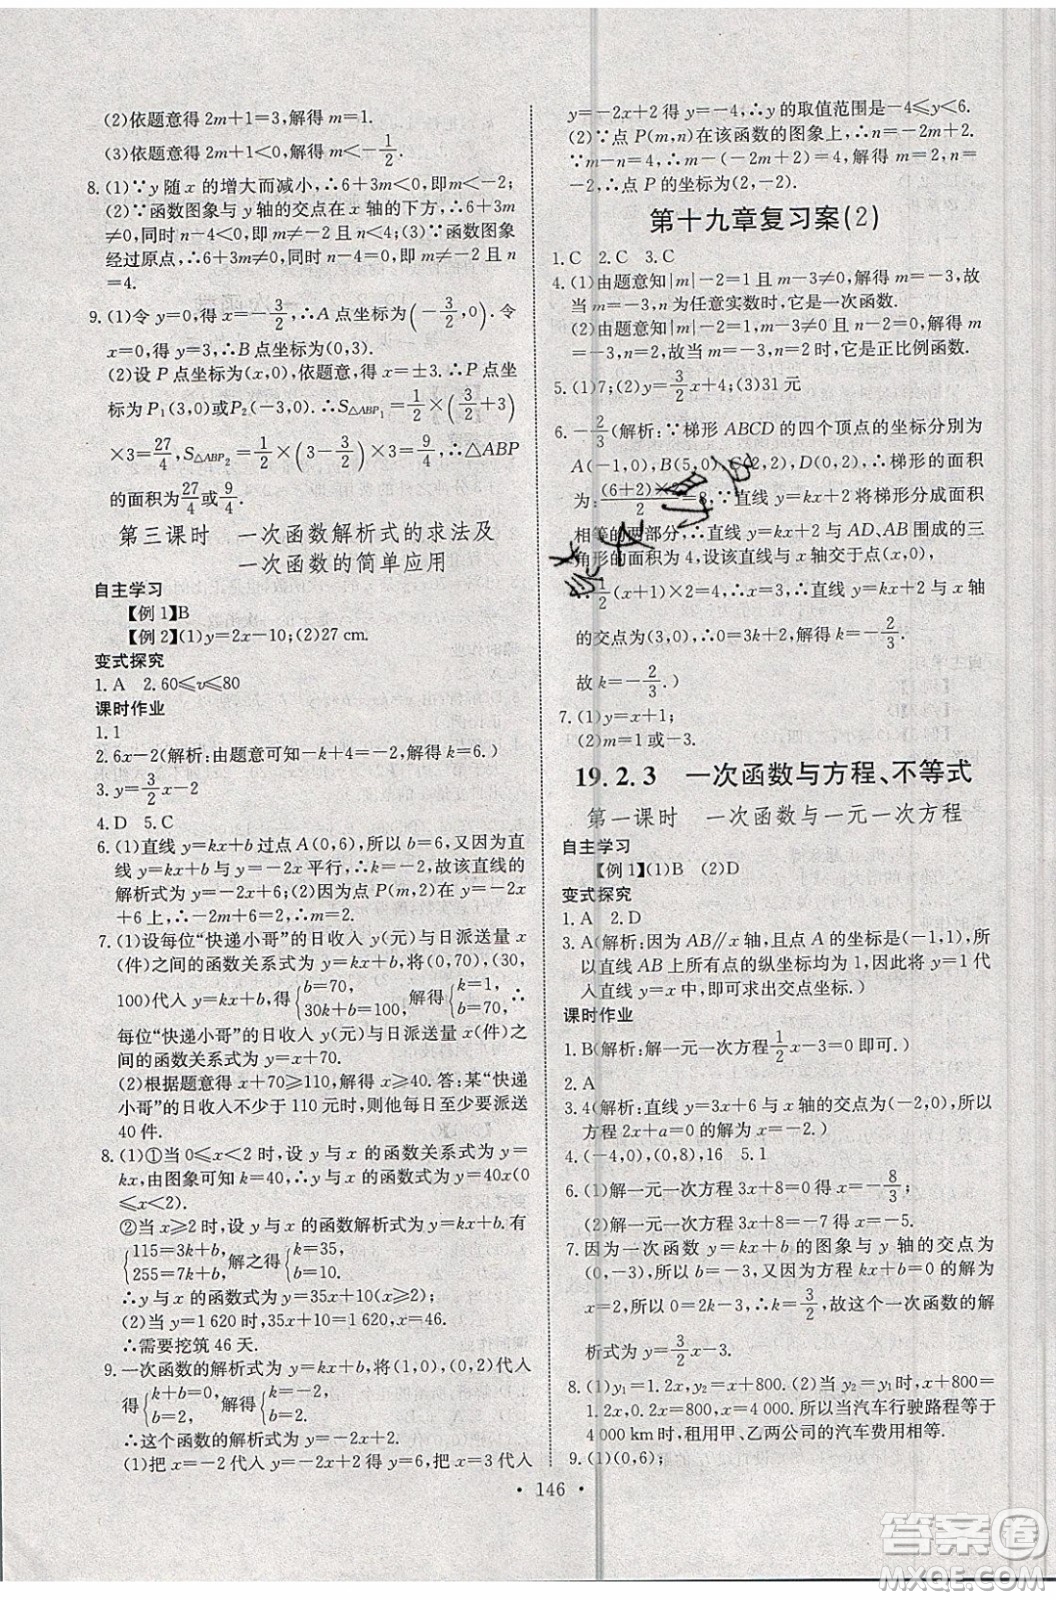 (2)依题意得 2m+1=3,解得 m=1.
(3)依题意得 2m+1<0,解得 m<-1/2.
8.(1)∵y 随 x 的增大而减小,∴6+3m<0,即 m<-2;
(2)∵函数图象与 y 轴的交点在 x 轴的下方,∴6+3m
≠0,∴m≠-2,同时 n-4<0,即 n<4;(3)∵函数图象
经过原点,∴6+3m≠0,∴m≠-2,同时 n-4=0,即 n
=4.
9.(1)令 y=0,得 x=-3/2,∴A 点坐标为(-3/2,0).令
x=0,得 y=3,∴B 点坐标为(0,3).
(2)设 P 点坐标为(x,0),依题意得 x=±3.∴P 点坐
标为 P₁(3,0)或P₂(-3,0).∴S△ABP₁=1/2×(3/2+3)
×3=27/4,S△ABP₂=1/2×(3-3/2)×3=9/4,∴△ABP
的面积为27/4或9/4.
第三课时 一次函数解析式的求法及
一次函数的简单应用
自主学习
【例1】B
【例2】(1)y=2x-10;(2)27 cm.
变式探究
1. A 2. 60≤v≤80
课时作业
1. 1
2. 6x-2(解析:由题意可知-k+4=-2,解得 k=6.)
3. y=3/2x-2
4. D 5. C
6.(1)直线 y=kx+b 过点 A(0,6),所以 b=6,又因为直
线 y=kx+b 与 y=-2x 平行,∴k=-2,故该直线的
解析式为 y=-2x+6.(2)因为点 P(m,2)在 y=-2x
+6 上,∴-2m+6=2,∴m=2.
7.(1)设每位“快递小哥”的日收入 y(元)与日派送量 x
(件)之间的函数关系式为 y=kx+b,将(0,70),(30,
100)代入 y=kx+b,得{b=70, 30k+b=100,解得{k=1, b=70,∴
每位“快递小哥”的日收入 y(元)与日派送量 x(件)之
间的函数关系式为 y=x+70.
(2)根据题意得 x+70≥110,解得 x≥40.答:某“快递
小哥”的日收入不少于 110 元时,则他至少要派送
40 件.
8.(1)①当 0≤x<2 时,设 y 与 x 的函数关系式为 y=
kx,由图象可知 k=40,故函数关系式为 y=40x(0
≤x<2).
②当 x≥2 时,设 y 与 x 的函数解析式为 y=kx+b.有
{115=3k+b, 255=7k+b,解之得{k=35, b=10.
∴y 与 x 的函数式为 y=35x+10(x≥2)
(2)当 y=1 620 时,35x+10=1 620,x=46.
∴需要挖筑 46 天.
9.一次函数的解析式为 y=kx+b,将(1,0),(0,2)代入
得{k+b=0, b=2,得{k=-2, b=2,
∴这个函数的解析式为 y=-2x+2.
(1)把 x=-2 代入 y=-2x+2 得 y=6,把 x=3 代入
y=-2x+2 得 y=-4,∴y 的取值范围是-4≤y<6.
(2)∵点 P(m,n)在该函数的图象上,∴n=-2m+2.
∵m-n=4,∴m-(-2m+2)=4,解得 m=2,n=
-2,∴点 P 的坐标为(2,-2).
第十九章复习案(2)
1. C 2. C 3. C
4.(1)由题意知|m|-2=1 且 m-3≠0,解得 m=-3,故
当 m=-3,n 为任意实数时,它是一次函数.
(2)由题意知|m|-2=1,m-3≠0 且 n-2=0,解得 m
=-3,n=2,故当 m=-3,n=2 时,它是正比例函数.
5.(1)7;(2)y=3/2x+4;(3)31 元
6. -2/3(解析:∵梯形 ABCD 的四个顶点的坐标分别为
A(-1,0),B(5,0),C(2,2),D(0,2),∴梯形的面积
为:(6+2)×2/2=8,∵直线 y=kx+2 将梯形分成面积
相等的两部分,∴直线 y=kx+2 与 AD、AB 围成的三
角形的面积为 4,设该直线与 x 轴交于点(x,0),
∴1/2(x+1)×2=4,∴x=3,∴直线 y=kx+2 与 x 轴
的交点为(3,0),∴0=3k+2,解得 k=-2/3.
故 k=-2/3.)
7.(1)y=x+1;
(2)m=1 或-3.
19.2.3 一次函数与方程、不等式
第一课时 一次函数与一元一次方程
自主学习
【例1】(1)B (2)D
变式探究
1. A 2. D
3. A(解析:因为 AB∥x 轴,且点 A 的坐标是(-1,1),所
以直线 AB 上所有点的纵坐标均为 1,因此将 y=1 代
入直线 y=x 中,即可求出交点坐标.)
课时作业
1. B(解析:解一元一次方程1/2x-1=0 即可.)
2. A
3. 4(解析:直线 y=3x+6 与 x 轴的交点为(-2,0),所以
方程 2x+a=0 的解为 x=-2.)
4. (-4,0),(0,8),16 5. 1
6.(1)解一元一次方程 3x+8=0 得 x=-8/3;
(2)解一元一次方程 3x+8=-7 得 x=-5.
7.因为一次函数 y=kx+b 的图象与 y 轴的交点为
(0,-3),所以 b=-3,又因为方程 kx+b=0 的解为
x=2,所以 0=2k-3,∴k=3/2,故这个一次函数的解
析式为 y=3/2x-3.
8.(1)y₁=1.2x,y₂=x+800.(2)当 y₂=y₁时,x+800=
1.2x,0.2x=800,x=4 000.所以当汽车行驶路程等于
4 000 km 时,租用甲、乙两公司的汽车费用相等.
9.(1)(0,6);
• 146 •
答案圈
MXQE.COM